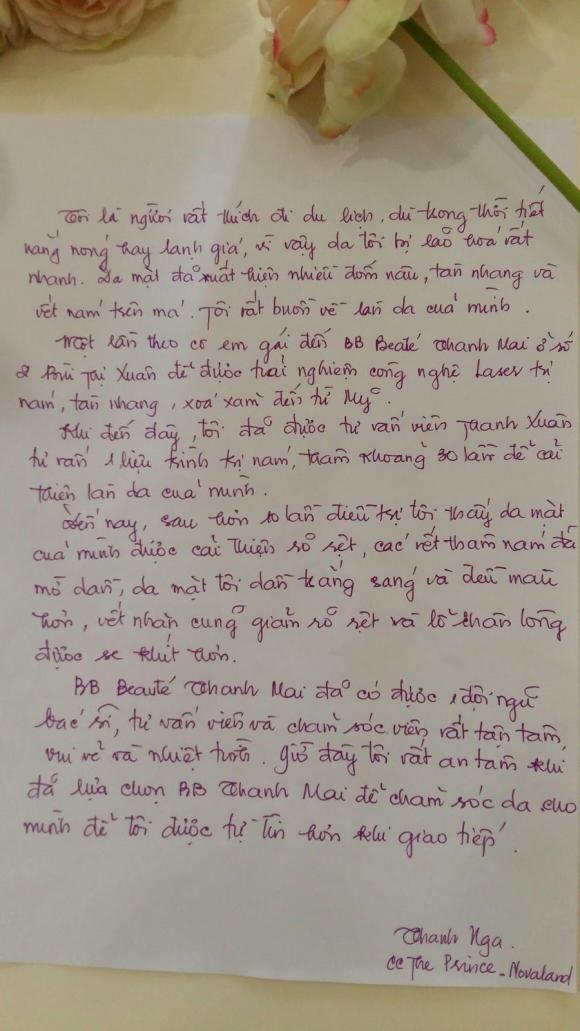 Tôi là người rất thích đi du lịch, dù trong thời tiết
nắng nóng hay lạnh giá, vì vậy da tôi bị lão hoá rất
nhanh. Da mặt đã xuất hiện nhiều đốm nâu, tàn nhang và
vết nám trên má. Tôi rất buồn về làn da của mình.
Một lần theo cô em gái đến BB Beauté Thanh Mai ở số
2 Bùi Thị Xuân để được trải nghiệm công nghệ Laser trị
nám, tàn nhang, xoá xăm đến từ Mỹ.
Khi đến đây, tôi đã được tư vấn viên Thanh Xuân
tư vấn 1 liệu trình trị nám, thâm khoảng 30 lần để cải
thiện làn da của mình.
Đến nay, sau hơn 10 lần điều trị tôi thấy da mặt
của mình được cải thiện rõ rệt, các vết thâm nám đã
mờ dần, da mặt tôi dần trắng sáng và đều màu
hơn, vết nhăn cũng giảm rõ rệt và lỗ chân lông
được se khít hơn.
BB Beauté Thanh Mai đã có được 1 đội ngũ
bác sĩ, tư vấn viên và chăm sóc viên rất tận tâm,
vui vẻ và nhiệt tình. Giờ đây tôi rất an tâm khi
đã lựa chọn BB Thanh Mai để chăm sóc da cho
mình để tôi được tự tin hơn khi giao tiếp.
Thanh Nga.
CC The Prince - Novaland